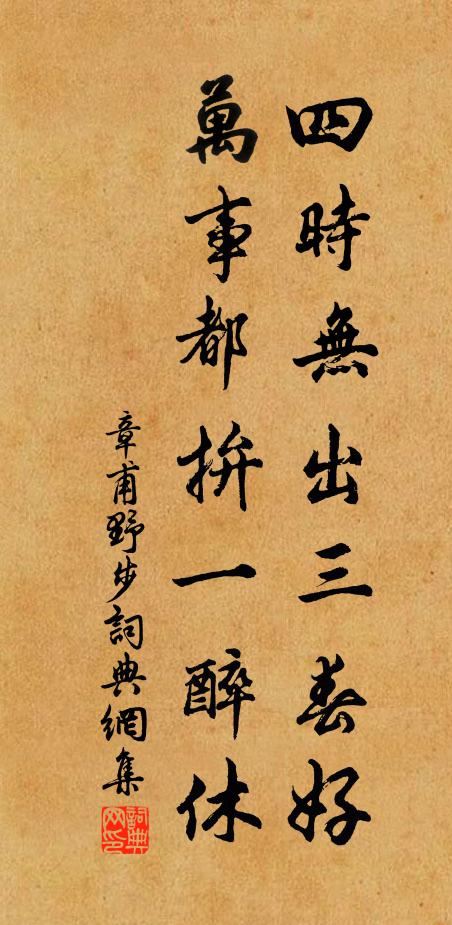 四時無出三春好
萬事都拚一醉休
章甫野步詞典網集
詞典網印